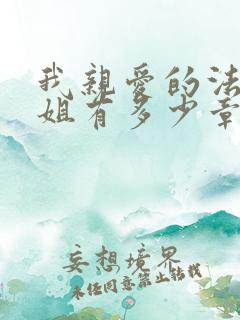 我親爱的法
姐有多少章
妄想境界
未任同意禁止転載